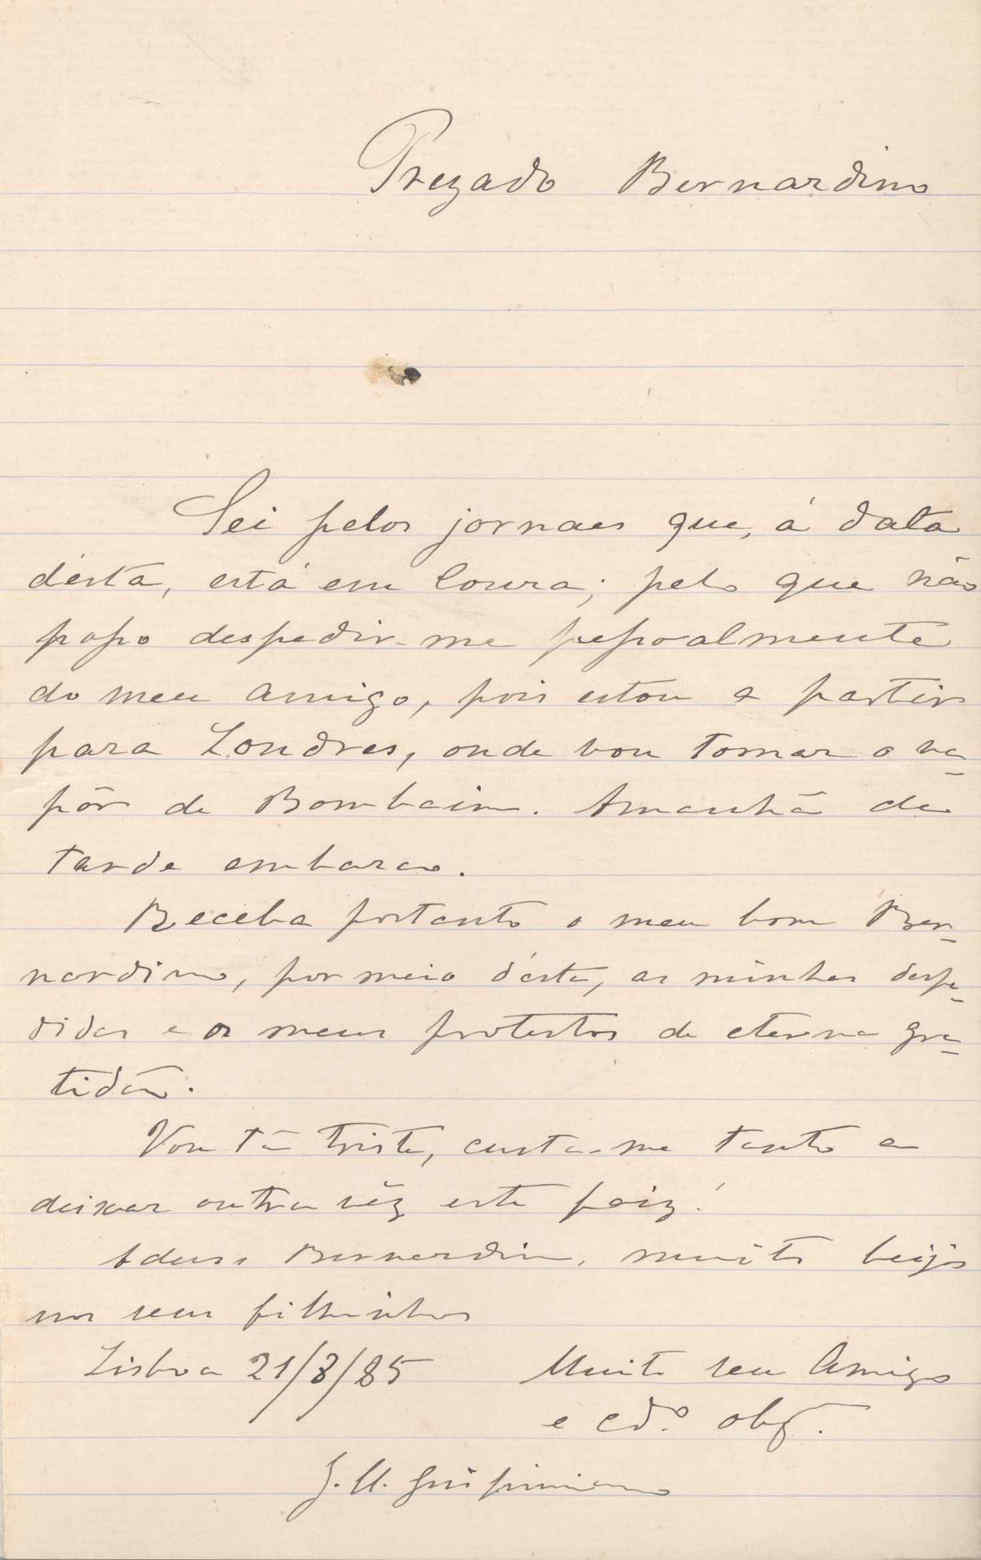 Prezado Bernardino
Sei pelos jornaes que, á data
d'esta, está em Coura; pelo que não
posso despedir-me pessoalmente
do meu amigo, pois estou a partir
para Londres, onde vou tomar o va-
pôr de Bombaim. Amanhã de
tarde embarco.
Receba portanto o meu bom Ber-
nardino, por meio d'esta, as minhas despe-
didas e os meus protestos de eterna gra-
tidão.
Vou tã triste, custa-me tanto a
deixar outra vêz este paiz!
Adeus Bernardino, muitos beijos
nos seus filhinhos
Lisboa 21/8/85 Muito seu Amigo
e cdº. obg.
J. M.